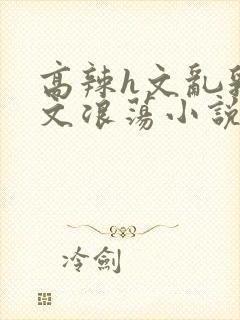 高辣h文亂
文浪蕩小說
冷劍